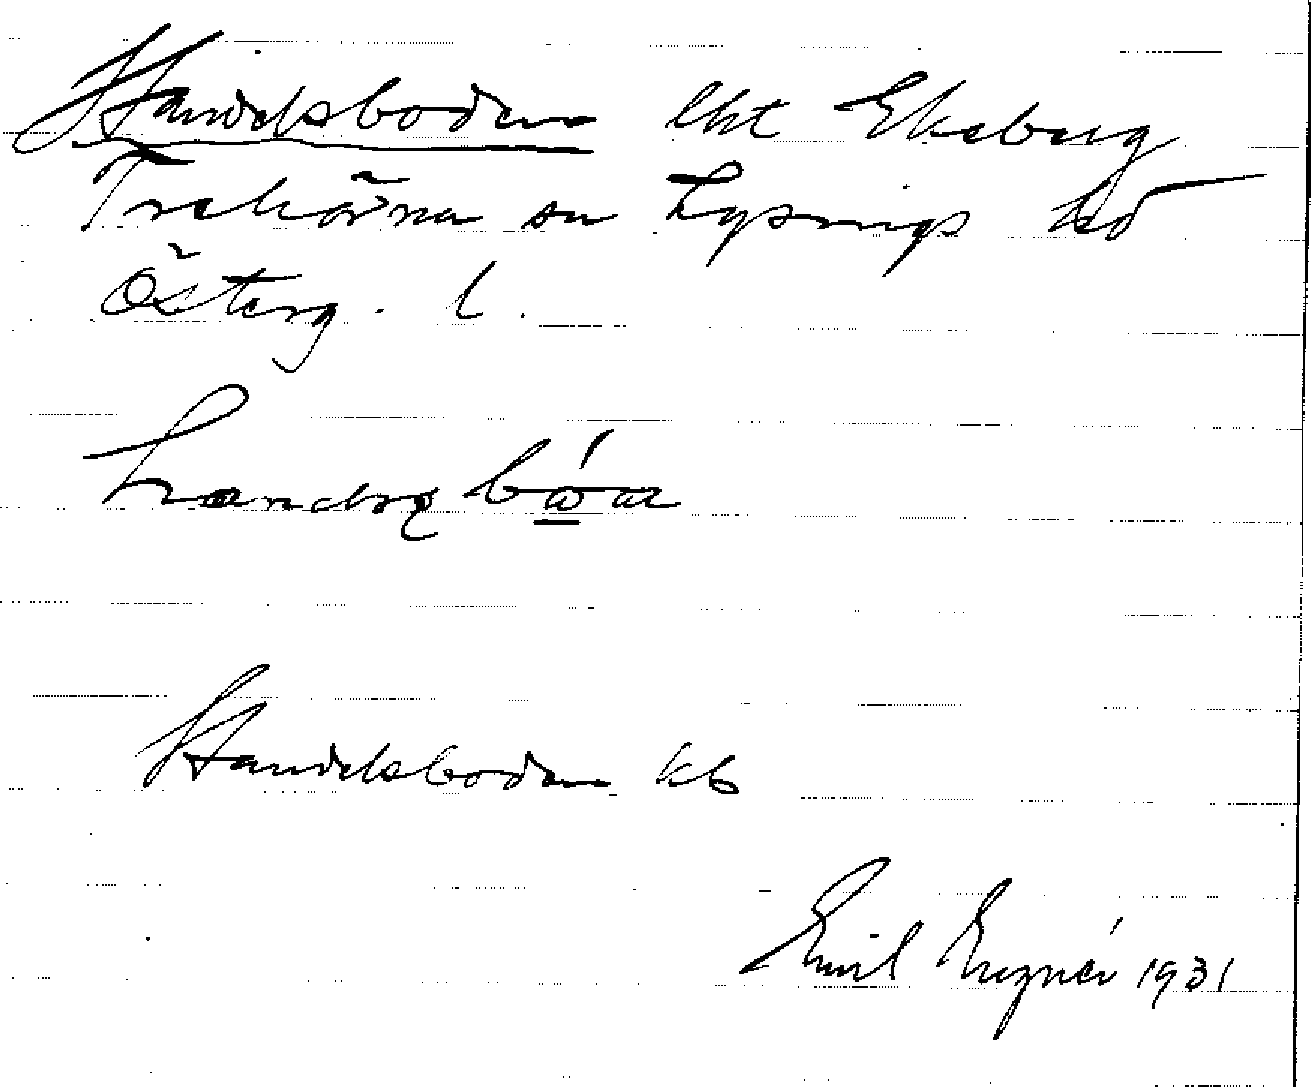 Handelsboden lht Ekeberg
Trehörna sn Lysings hd
Österg. l.
Handelsboden kb
Emil 1931